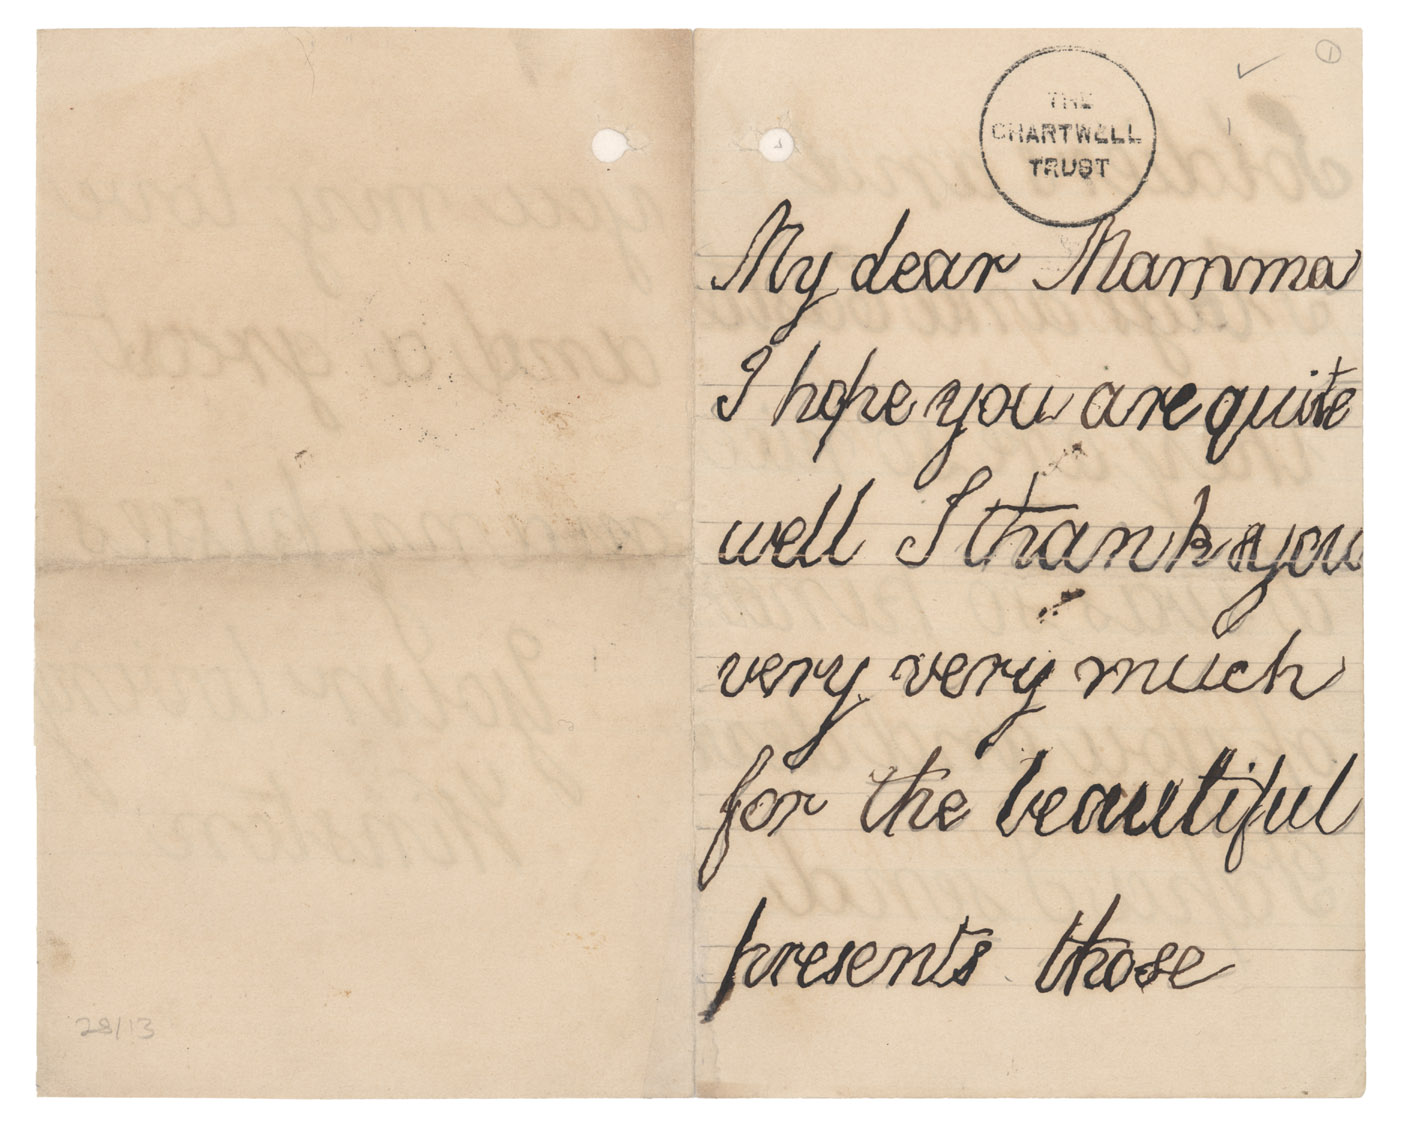 THE
CHARTWELL
TRUST
1
My dear Mamma
I hope you are quite
well I thank you
very very much
for the beautiful
presents those
28/13